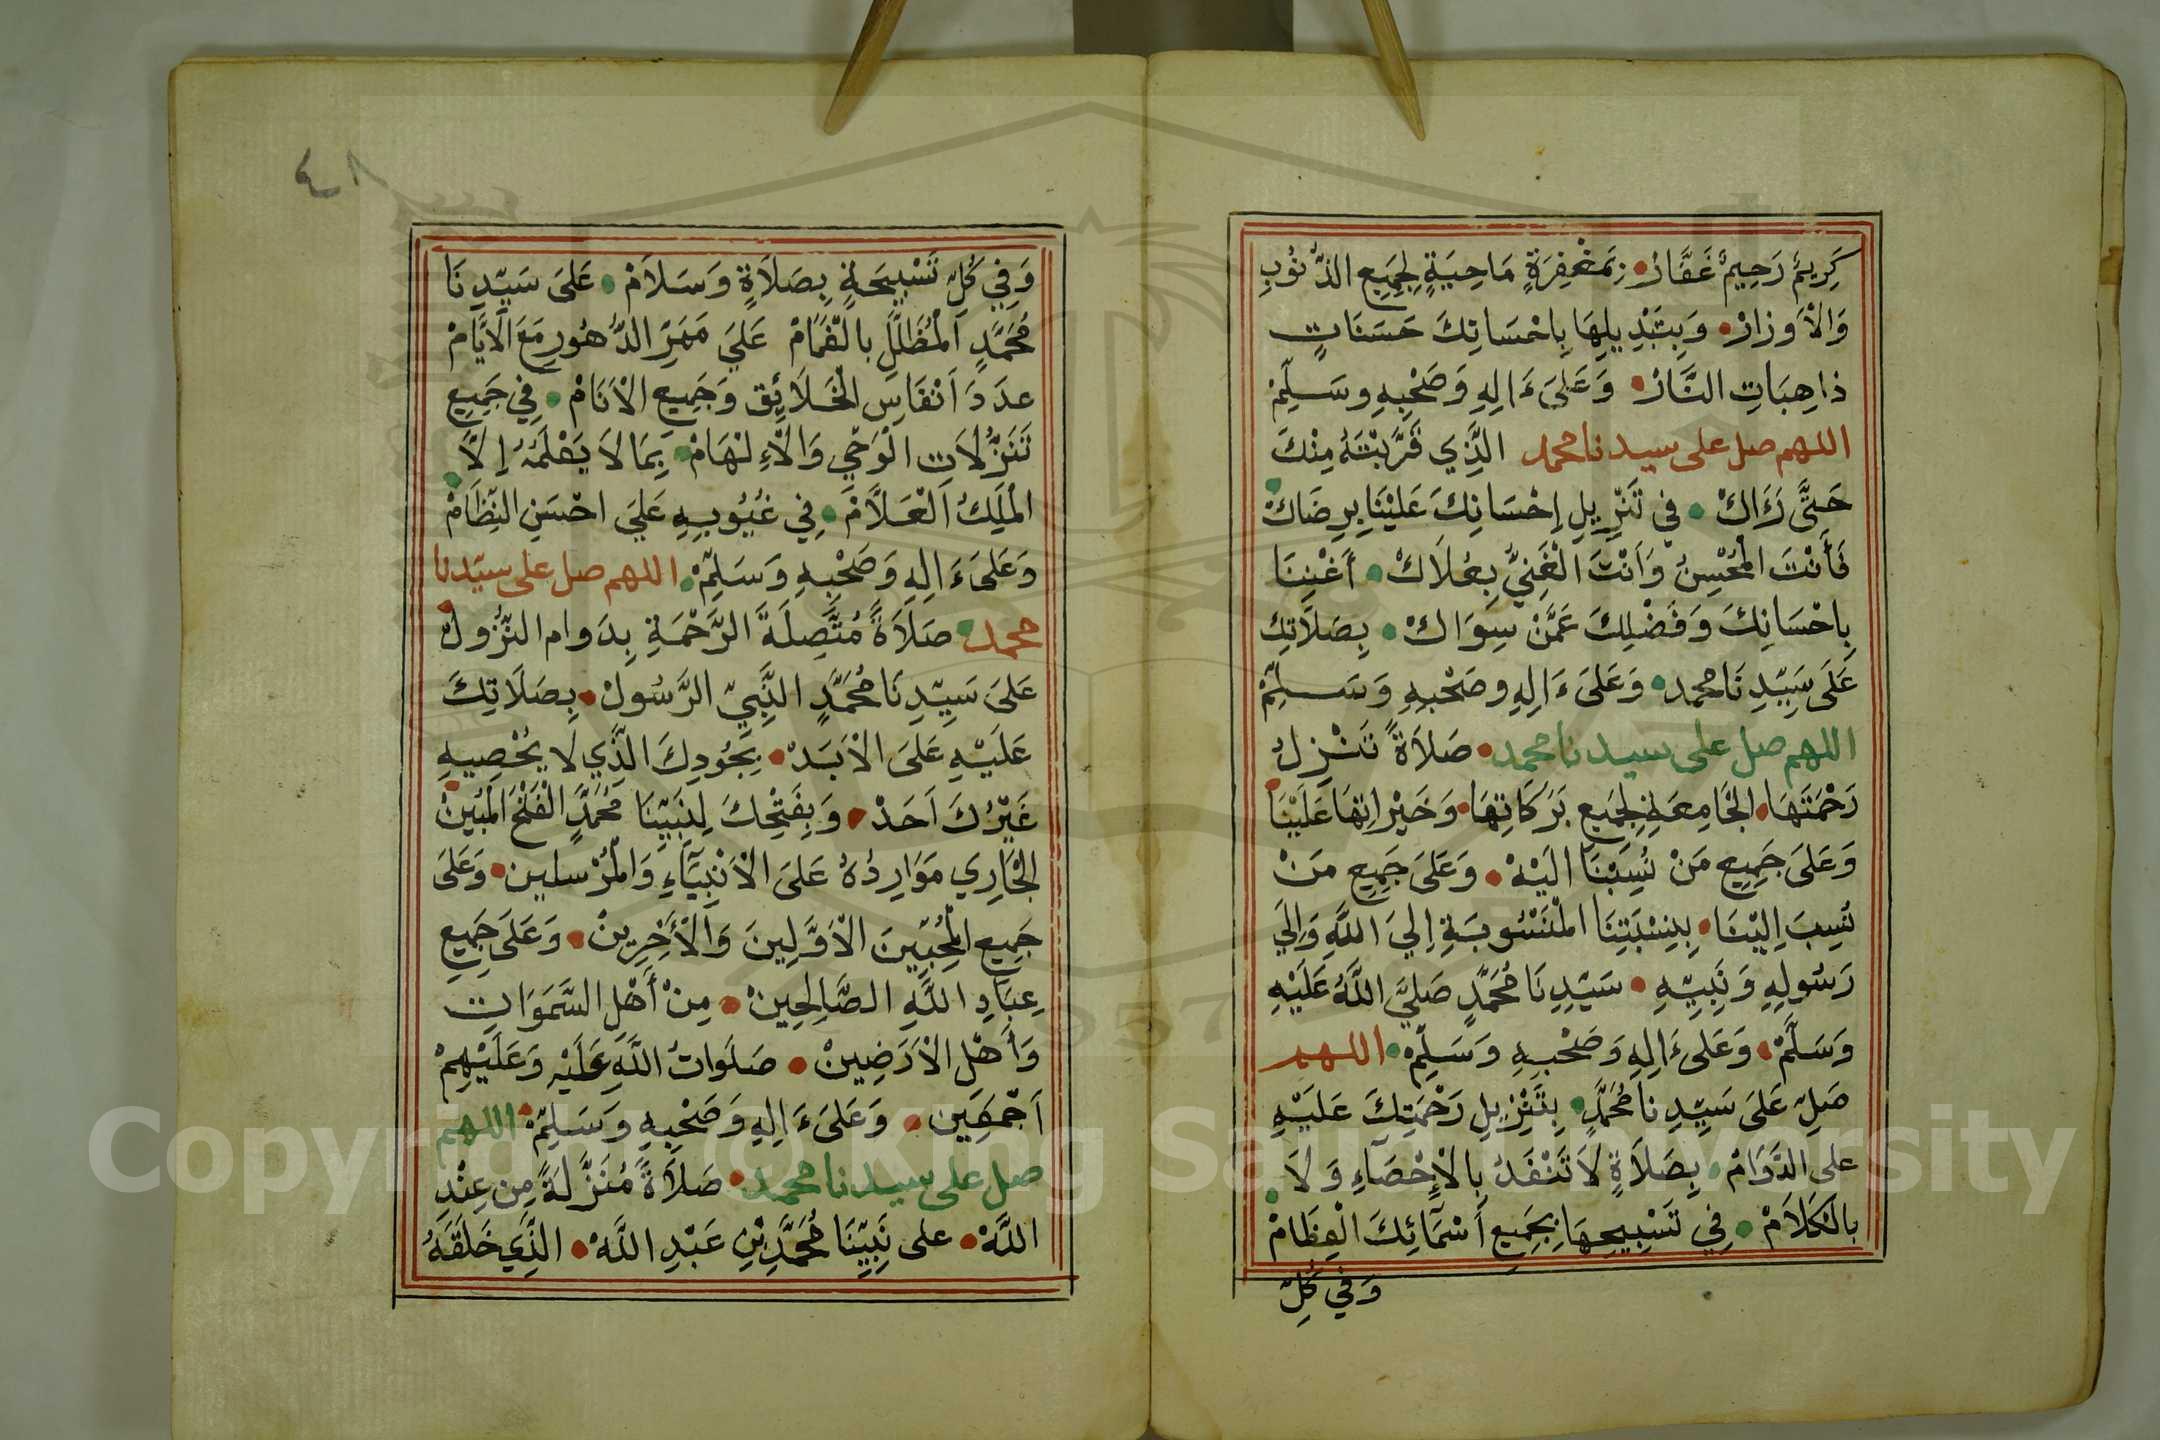 كَرِيمٌ رَحِيمٌ غَفَّارْ بِمَغْفِرَةٍ مَاحِيَةٍ لِجَمِيعِ الذُّنُوبِ
وَالْأَوزارْ وَبِتَبْدِيلِهَا بِاِحْسَانِكَ حَسَنَاتٍ
ذاهِبَاتِ النَّارْ وَعَلَىَ ءَالِهِ وَصَحْبِهِ وسَلِّمْ
اللهم صل على سيدنا محمد الَّذِي قَرَّبْتَهُ مِنْكَ
حَتَّى رَءَاكْ فِي تَنْزِيلِ إِحْسَانِكَ عَلَيْنَا بِرِضَاكْ
فَأَنْتَ الْمُحْسِنُ وَاَنْتَ الْغَنِيُّ بِعُلَاكْ أَغْنِنَا
بِاِحْسَانِكَ وَفَضْلِكَ عَمَّنْ سِوَاكْ بِصَلَاتِكَ
عَلَى سَيِّدِنَا محمد وَعَلَىَ ءَالِهِ وصَحْبِهِ وَسَلِّمْ
اللهم صل على سيدنا محمد صَلَاةً تَنْزِلُ
رَحْمَتَهَا الْجَامِعَةِ لِجَمِيعِ بَرَكَاتِهَا وَخَيْرَاتِهَا عَلَيْنَا
وَعَلَى جَمِيعِ مَنْ نُسِبْنَا اليْهْ وَعَلَى جَمِيعِ مَنْ
نُسِبَ اِلَيْنَا بِنِسْبَتِنَا الْمَنْسُوبَةِ إِلَيَ اللَّهِ وَاِلَي
رَسُولِهِ وَنَبِيِّهِ سَيِّدِنَا مُحَمَّدٍ صَلَّيَ اللَّهُ عَلَيْهِ
وَسَلَّمْ وَعَلَى ءَالِهِ وَصَحْبِهِ وَسَلِّمْ اللهم
صَلِّ عَلَى سَيِّدِنَا مُحَمَّدٍ بِتَنْزِيلِ رَحْمَتِكَ عَلَيْهِ
على الدَّوَامْ بِصَلَاةٍ لَا تَنْفَدُ بِالْإِحْصَآءِ وَلَا
بالْكَلَامْ فِي تَسْبِيحِهَا بِجَمِيعِ أَسْمَآئِكَ الْعِظَامْ
وَفِي كُلِّ
٤٨
وَفِي كُلِّ تَسْبِيحَةٍ بِصَلَاةٍ وَسَلَامْ عَلَى سَيِّدِنَا
مُحَمَّدٍ الْمُظَلَّلِ بِالْغَمَامْ عَلَيَ مَمَرِّ الدُّهُورِ مَعَ الْأَيَّامْ
عدَدَ اَنْفَاسِ الْخَلَائِقِ وَجَمِيعِ الْاَنَامْ فِي جَمِيعِ
تَنَزُّلَاتِ الْوَحْيِ وَالْاِءلْهَامْ بِمَا لَا يَعْلَمُهُ إِلَّا
الْمَلِكُ الْعَلَّامْ فِي غُيُوبِهِ عَلَيَ احْسَنِ النِّظَامْ
وَعَلَىَ ءَالِهِ وَصَحْبِهِ وَسَلِّمْ اللهم صل على سيّدنا
محمد صَلَاةً مُتَّصِلَةَ الرَّحْمَةِ بِدَوامِ النُّزُولْ
عَلَىَ سَيِّدِنَا مُحَمَّدٍ النَّبِيِّ الرَّسُولْ بِصَلَاتِكَ
عَلَيْهِ عَلَىَ الْاَبَدْ بِجُودِكَ الَّذِي لَا يُحْصِيهِ
غَيْرُكَ اَحَدْ وَبِفَتْحِكَ لِنَبِيِّنَا مُحَمَّدٍ الْفَتْحَ الْمُبِينْ
الْجَارِي مَوَارِدُهُ عَلَىَ الْاَنْبِيَآءِ وَالْمُرْسلين وَعَلَى
جَمِيعِ الْمُحِبِّينَ الْاَوَّلِينَ وَالْأَخِرِينْ وَعَلَى جَمِيعِ
عِبَادِ اللَّهِ الصَّالِحِينْ مِنْ أَهْلِ السَّمَوَاتِ
وَأَهْلِ الْاَرَضِينْ صَلَوَاتُ اللَّهِ عَلَيْهِ وَعَلَيْهِمْ
اَجْمَعِين وَعَلَىَ ءَالِهِ وَصَحْبِهِ وَسَلِّمْ اللهم
صل على سيدنا محمد صَلَاةً مُنَزَّلَةً مِن عِنْدِ
اللَّهْ على نَبِيِّنَا مُحَمَّدِ بْنِ عَبْدِ اللَّهْ الَّذِي خَلَقَهُ
Copyright to King Saud University
1957